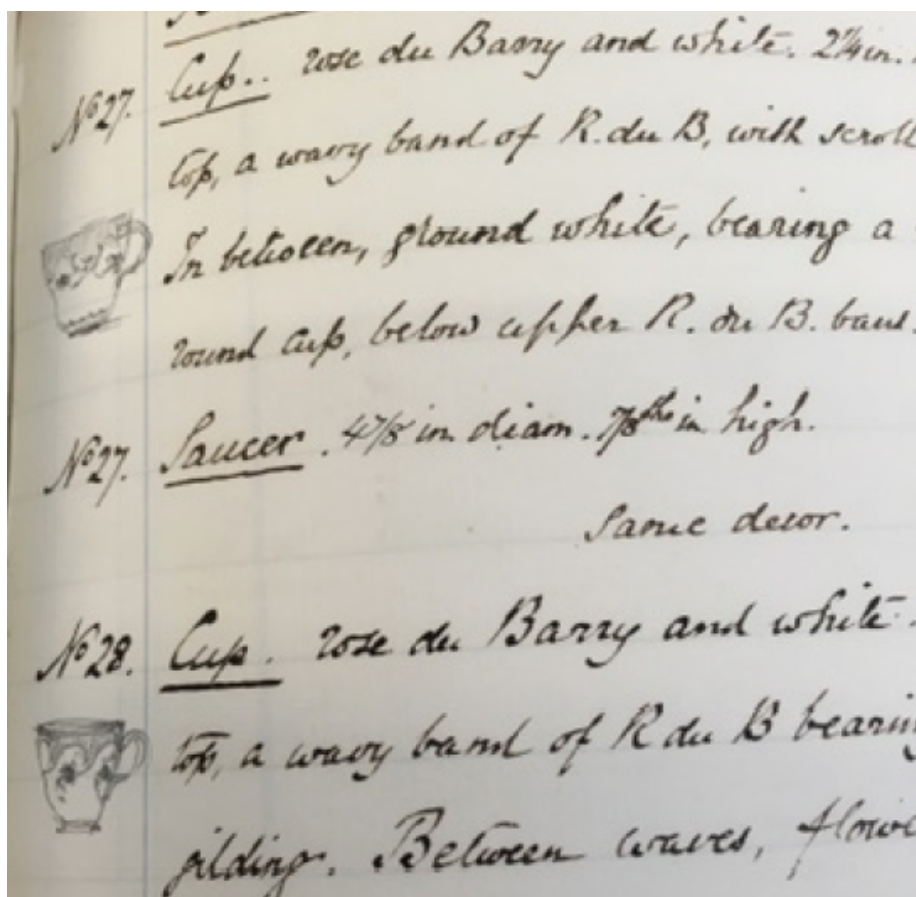 No 27. Cup.. rose du Barry and white. 2¼ in.
top, a wavy band of R. du B, with scroll
In between, ground white, bearing a
round cup, below upper R. du B. band.
No 27. Saucer. 4⅞ in diam. ⅞ths in high.
Same decor.
No 28. Cup. rose du Barry and white.
top, a wavy band of R du B bearing
gilding. Between waves, flowe